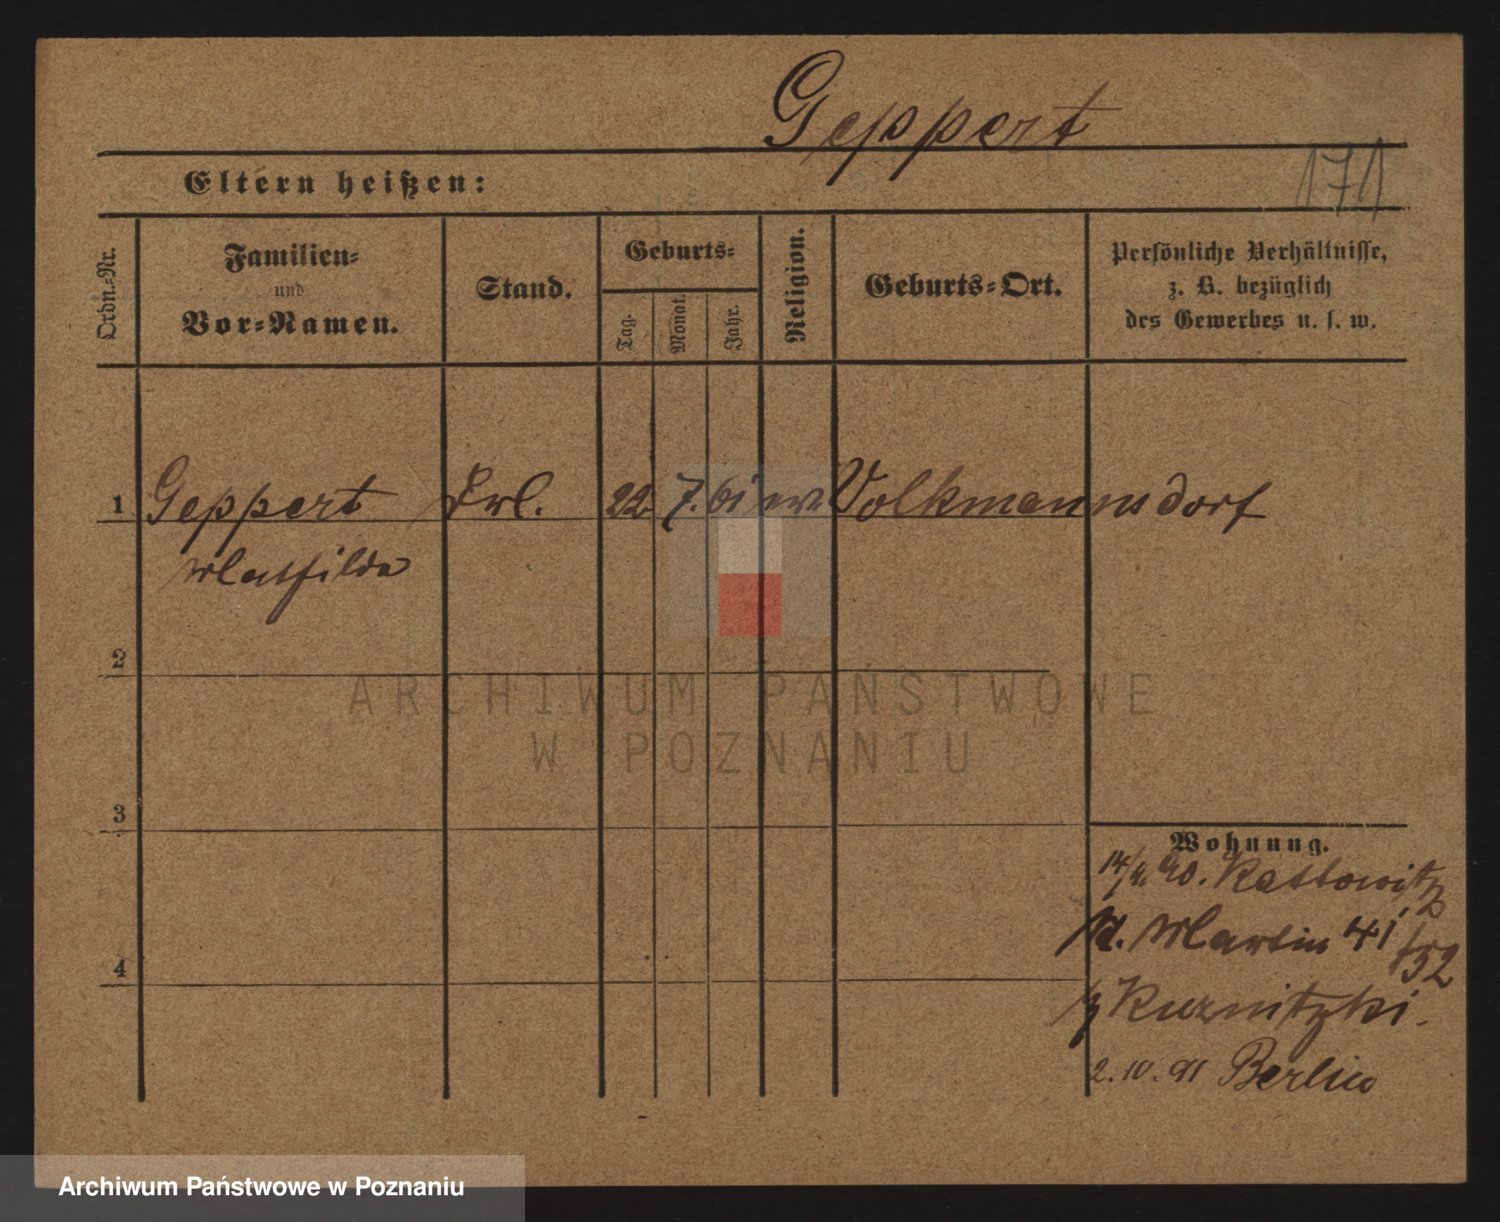 Geppert
Eltern heißen:
171
Ordn.-Nr.
Familien-
und
Vor-Namen.
Stand.
Geburts-
Tag.
Monat.
Jahr.
Religion.
Geburts-Ort.
Persönliche Verhältnisse,
z. B. bezüglich
des Gewerbes u. s. w.
1 Geppert Frl. 22. 7. 61 ev. Volkmannsdorf
Mathilde
2
ARCHIWUM PAŃSTWOWE
W POZNANIU
3
Wohnung.
14/4. 90. Kattowitz
St. Martin 41/52
4
b/ Kuznitzki.
2. 10. 91 Berlin
Archiwum Państwowe w Poznaniu